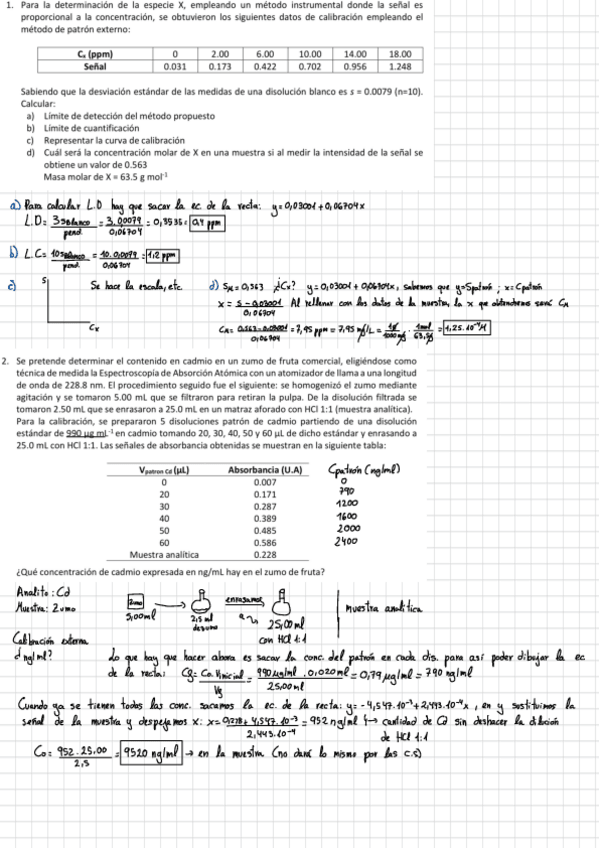 1. Para la determinación de la especie X, empleando un método instrumental donde la señal es
proporcional a la concentración, se obtuvieron los siguientes datos de calibración empleando el
método de patrón externo:
Cₓ (ppm) 0 2.00 6.00 10.00 14.00 18.00
Señal 0.031 0.173 0.422 0.702 0.956 1.248
Sabiendo que la desviación estándar de las medidas de una disolución blanco es s = 0.0079 (n=10).
Calcular:
a) Límite de detección del método propuesto
b) Límite de cuantificación
c) Representar la curva de calibración
d) Cuál será la concentración molar de X en una muestra si al medir la intensidad de la señal se
obtiene un valor de 0.563
Masa molar de X = 63.5 g mol⁻¹
a) Para calcular L.D hay que sacar la ec. de la recta: y = 0,03001 + 0,06704x
L.D = 3 s blanco / pend. = 3. 0,0079 / 0,06704 = 0,3535 ≈ 0,4 ppm
b) L.C = 10 s blanco / pend. = 10. 0,0079 / 0,06704 = 1,2 ppm
c) S Cx Se hace la escala, etc.
d) Sx = 0,563 ¿Cx? y = 0,03001 + 0,06704x, sabemos que y = Spatrón ; x = Cpatrón
x = S - 0,03001 / 0,06704 Al rellenar con los datos de la muestra, la x que obtendremos será Cx
Cx = 0,563 - 0,03001 / 0,06704 = 7,95 ppm = 7,95 mg/L = 1g / 1000 mg . 1mol / 63,5g = 1,25. 10⁻⁴ M
2. Se pretende determinar el contenido en cadmio en un zumo de fruta comercial, eligiéndose como
técnica de medida la Espectroscopía de Absorción Atómica con un atomizador de llama a una longitud
de onda de 228.8 nm. El procedimiento seguido fue el siguiente: se homogenizó el zumo mediante
agitación y se tomaron 5.00 mL que se filtraron para retiran la pulpa. De la disolución filtrada se
tomaron 2.50 mL que se enrasaron a 25.0 mL en un matraz aforado con HCl 1:1 (muestra analítica).
Para la calibración, se prepararon 5 disoluciones patrón de cadmio partiendo de una disolución
estándar de 990 µg mL⁻¹ en cadmio tomando 20, 30, 40, 50 y 60 µL de dicho estándar y enrasando a
25.0 mL con HCl 1:1. Las señales de absorbancia obtenidas se muestran en la siguiente tabla:
Vpatron Cd (µL) Absorbancia (U.A) Cpatrón (ng/ml)
0 0.007 0
20 0.171 790
30 0.287 1200
40 0.389 1600
50 0.485 2000
60 0.586 2400
Muestra analítica 0.228
¿Qué concentración de cadmio expresada en ng/mL hay en el zumo de fruta?
Analito : Cd
Muestra: Zumo
zumo
5,00ml
2,5 ml
de zumo
enrasamos
a
25,00 ml
con HCl 1:1
muestra analítica
Calibración externa
¿ng/ml?
Lo que hay que hacer ahora es sacar la conc. del patrón en cada dis. para así poder dibujar la ec
de la recta: = 990 µg/ml . 0,020 ml / 25,00ml = 0,79 µg/ml = 790 ng/ml
Cuando ya se tienen todas las conc. sacamos la ec. de la recta: y = -4,547. 10⁻³ + 2,443. 10⁻⁴x , en y sustituimos la
señal de la muestra y despejamos x: x = 0,228 + 4,547. 10⁻³ / 2,443. 10⁻⁴ = 952 ng/ml → cantidad de Cd sin deshacer la dilución
de HCl 1:1
Co = 952 . 25,00 / 2,5 = 9520 ng/ml → en la muestra (no dará lo mismo por las c.s)